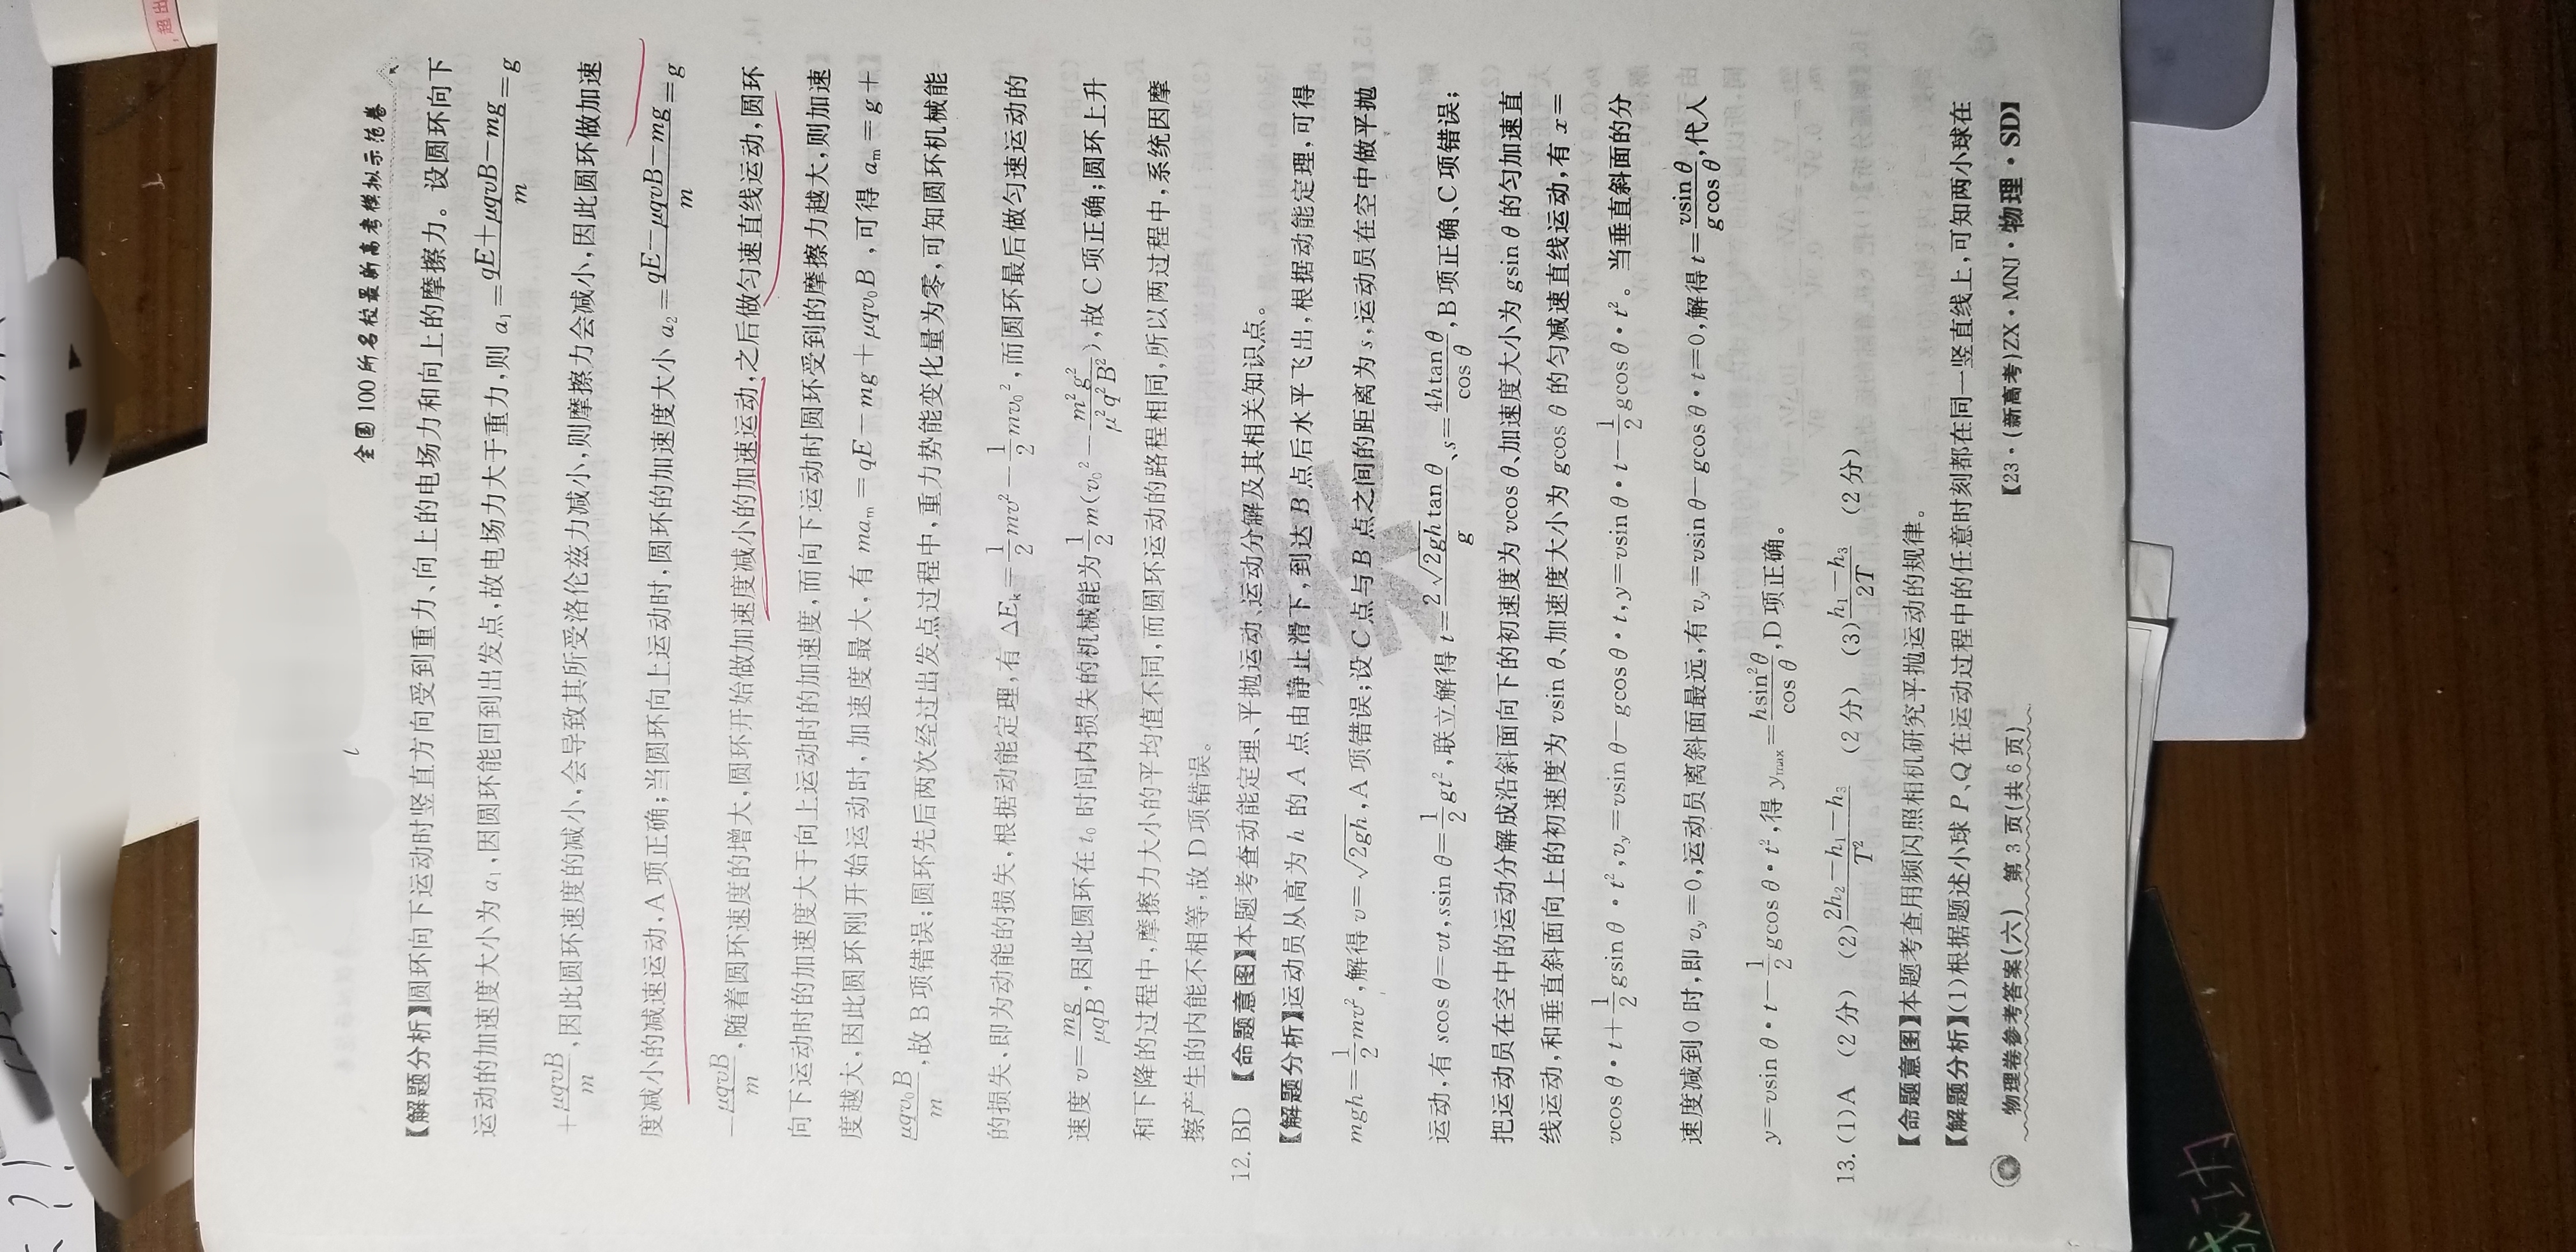 全国100所名校最新高考模拟示范卷
【解题分析】圆环向下运动时竖直方向受到重力、向上的电场力和向上的摩擦力。设圆环向下
运动的加速度大小为 a₁,因圆环能回到出发点,故电场力大于重力,则 a₁=(qE+μqvB−mg)/m=g
+μqvB/m,因此圆环速度的减小,会导致其所受洛伦兹力减小,则摩擦力会减小,因此圆环做加速
度减小的减速运动,A项正确;当圆环向上运动时,圆环的加速度大小 a₂=(qE−μqvB−mg)/m=g
−μqvB/m,随着圆环速度的增大,圆环开始做加速度减小的加速运动,之后做匀速直线运动,圆环
向下运动时的加速度大于向上运动时的加速度,而向下运动时圆环受到的摩擦力越大,则加速
度越大,因此圆环刚开始运动时,加速度最大,有 maₘ=qE−mg+μqv₀B,可得 aₘ=g+
μqv₀B/m,故B项错误;圆环先后两次经过出发点过程中,重力势能变化量为零,可知圆环机械能
的损失、即为动能的损失,根据动能定理,有 ΔEₖ=1/2mv²−1/2mv₀²,而圆环最后做匀速运动的
速度 v=mg/μqB,因此圆环在 t₀ 时间内损失的机械能为1/2m(v₀²−m²g²/μ²q²B²),故C项正确;圆环上升
和下降的过程中,摩擦力大小的平均值不同,而圆环运动的路程相同,所以两过程中,系统因摩
擦产生的内能不相等,故D项错误。
12. BD 【命题意图】本题考查动能定理、平抛运动、运动分解及其相关知识点。
【解题分析】运动员从高为 h 的 A 点由静止滑下,到达 B 点后水平飞出,根据动能定理,可得
mgh=1/2mv²,解得 v=√2gh,A项错误;设C点与B点之间的距离为 s,运动员在空中做平抛
运动,有 scos θ=vt,ssin θ=1/2gt²,联立解得 t=2√2gh tan θ/g、s=4htan θ/cos θ,B项正确、C项错误;
把运动员在空中的运动分解成沿斜面向下的初速度为 vcos θ、加速度大小为 gsin θ 的匀加速直
线运动,和垂直斜面向上的初速度为 vsin θ、加速度大小为 gcos θ 的匀减速直线运动,有 x=
vcos θ·t+1/2gsin θ·t²,vy=vsin θ−gcos θ·t,y=vsin θ·t−1/2gcos θ·t²。当垂直斜面的分
速度减到0时,即 vy=0,运动员离斜面最远,有 vy=vsin θ−gcos θ·t=0,解得 t=vsin θ/gcos θ,代入
y=vsin θ·t−1/2gcos θ·t²,得 ymax=hsin²θ/cos θ,D项正确。
13. (1)A (2分) (2)(2h₂−h₁−h₃)/T² (2分) (3)(h₁−h₃)/2T (2分)
【命题意图】本题考查用频闪照相机研究平抛运动的规律。
【解题分析】(1)根据题述小球 P、Q 在运动过程中的任意时刻都在同一竖直线上,可知两小球在
物理卷参考答案(六) 第3页(共6页) 【23·(新高考)ZX·MNJ·物理·SD】